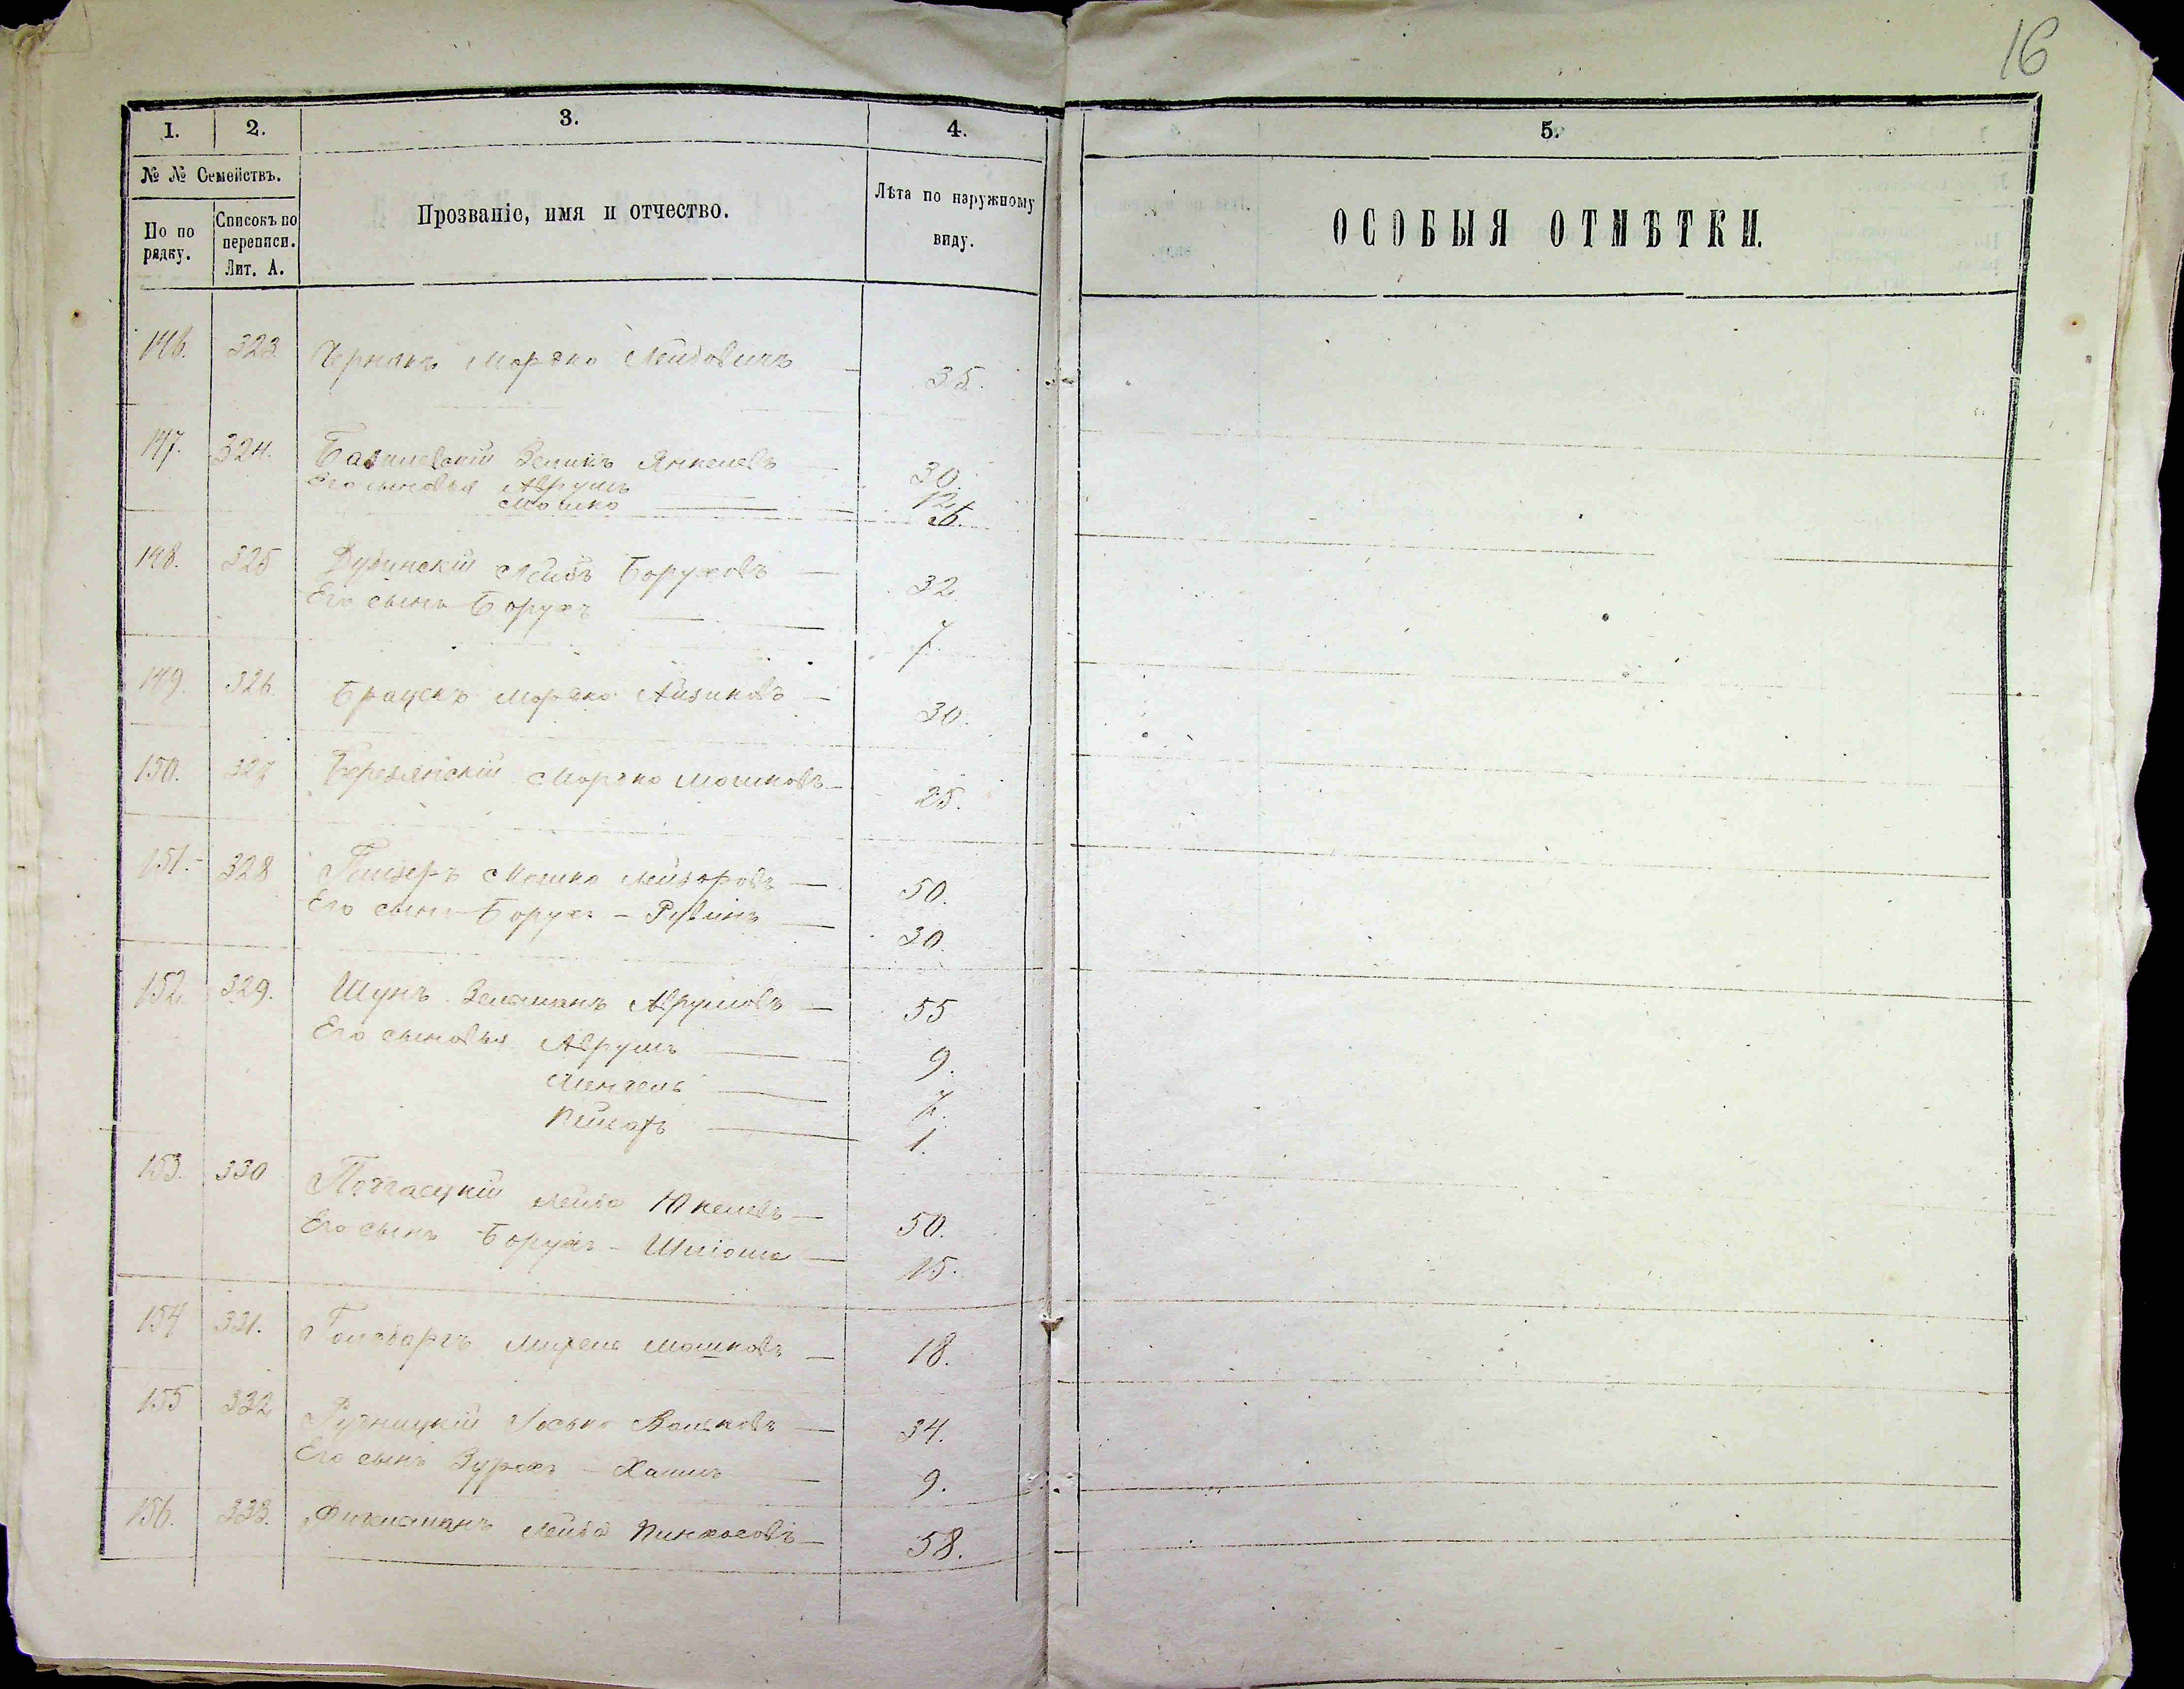 16
1. 2. 3. 4. 5.
№ № Семействъ.
По по рядку.
Списокъ по переписи. Лит. А.
Прозваніе, имя и отчество.
Лѣта по наружному виду.
ОСОБЫЯ ОТМѢТКИ.
146. 323. Чернякъ Мордко Лейбовичъ — 35.
147. 324. Зельикъ Янкелевъ — 30.
Его сыновья Аврумъ — 12.
Мошко — 5.
148. 325 Дубинскій Лейбъ Боруховъ — 32
Его сынъ Борухъ — 7.
149. 326. Мордко Айзиковъ — 30.
150. 327 Березянскій Мордко Мошковъ — 25.
151. 328 Мошко Лейзоровъ — 50.
Его сынъ Борухъ - Рувинъ — 30.
152. 329. Шунъ Зельманъ Аврумовъ — 55
Его сыновья Аврумъ — 9.
Мендель — 7.
1.
153. 330 Лейба Юкелевъ — 50.
Его сынъ Борухъ - Шліома — 15.
154 331. Гольдбергъ Михель Мошковъ — 18.
155 332 Рудницкій Іосько Вольковъ — 34.
Его сынъ — Хаимъ — 9.
156. 333. Фихтманъ Лейба Пинхасовъ — 58.